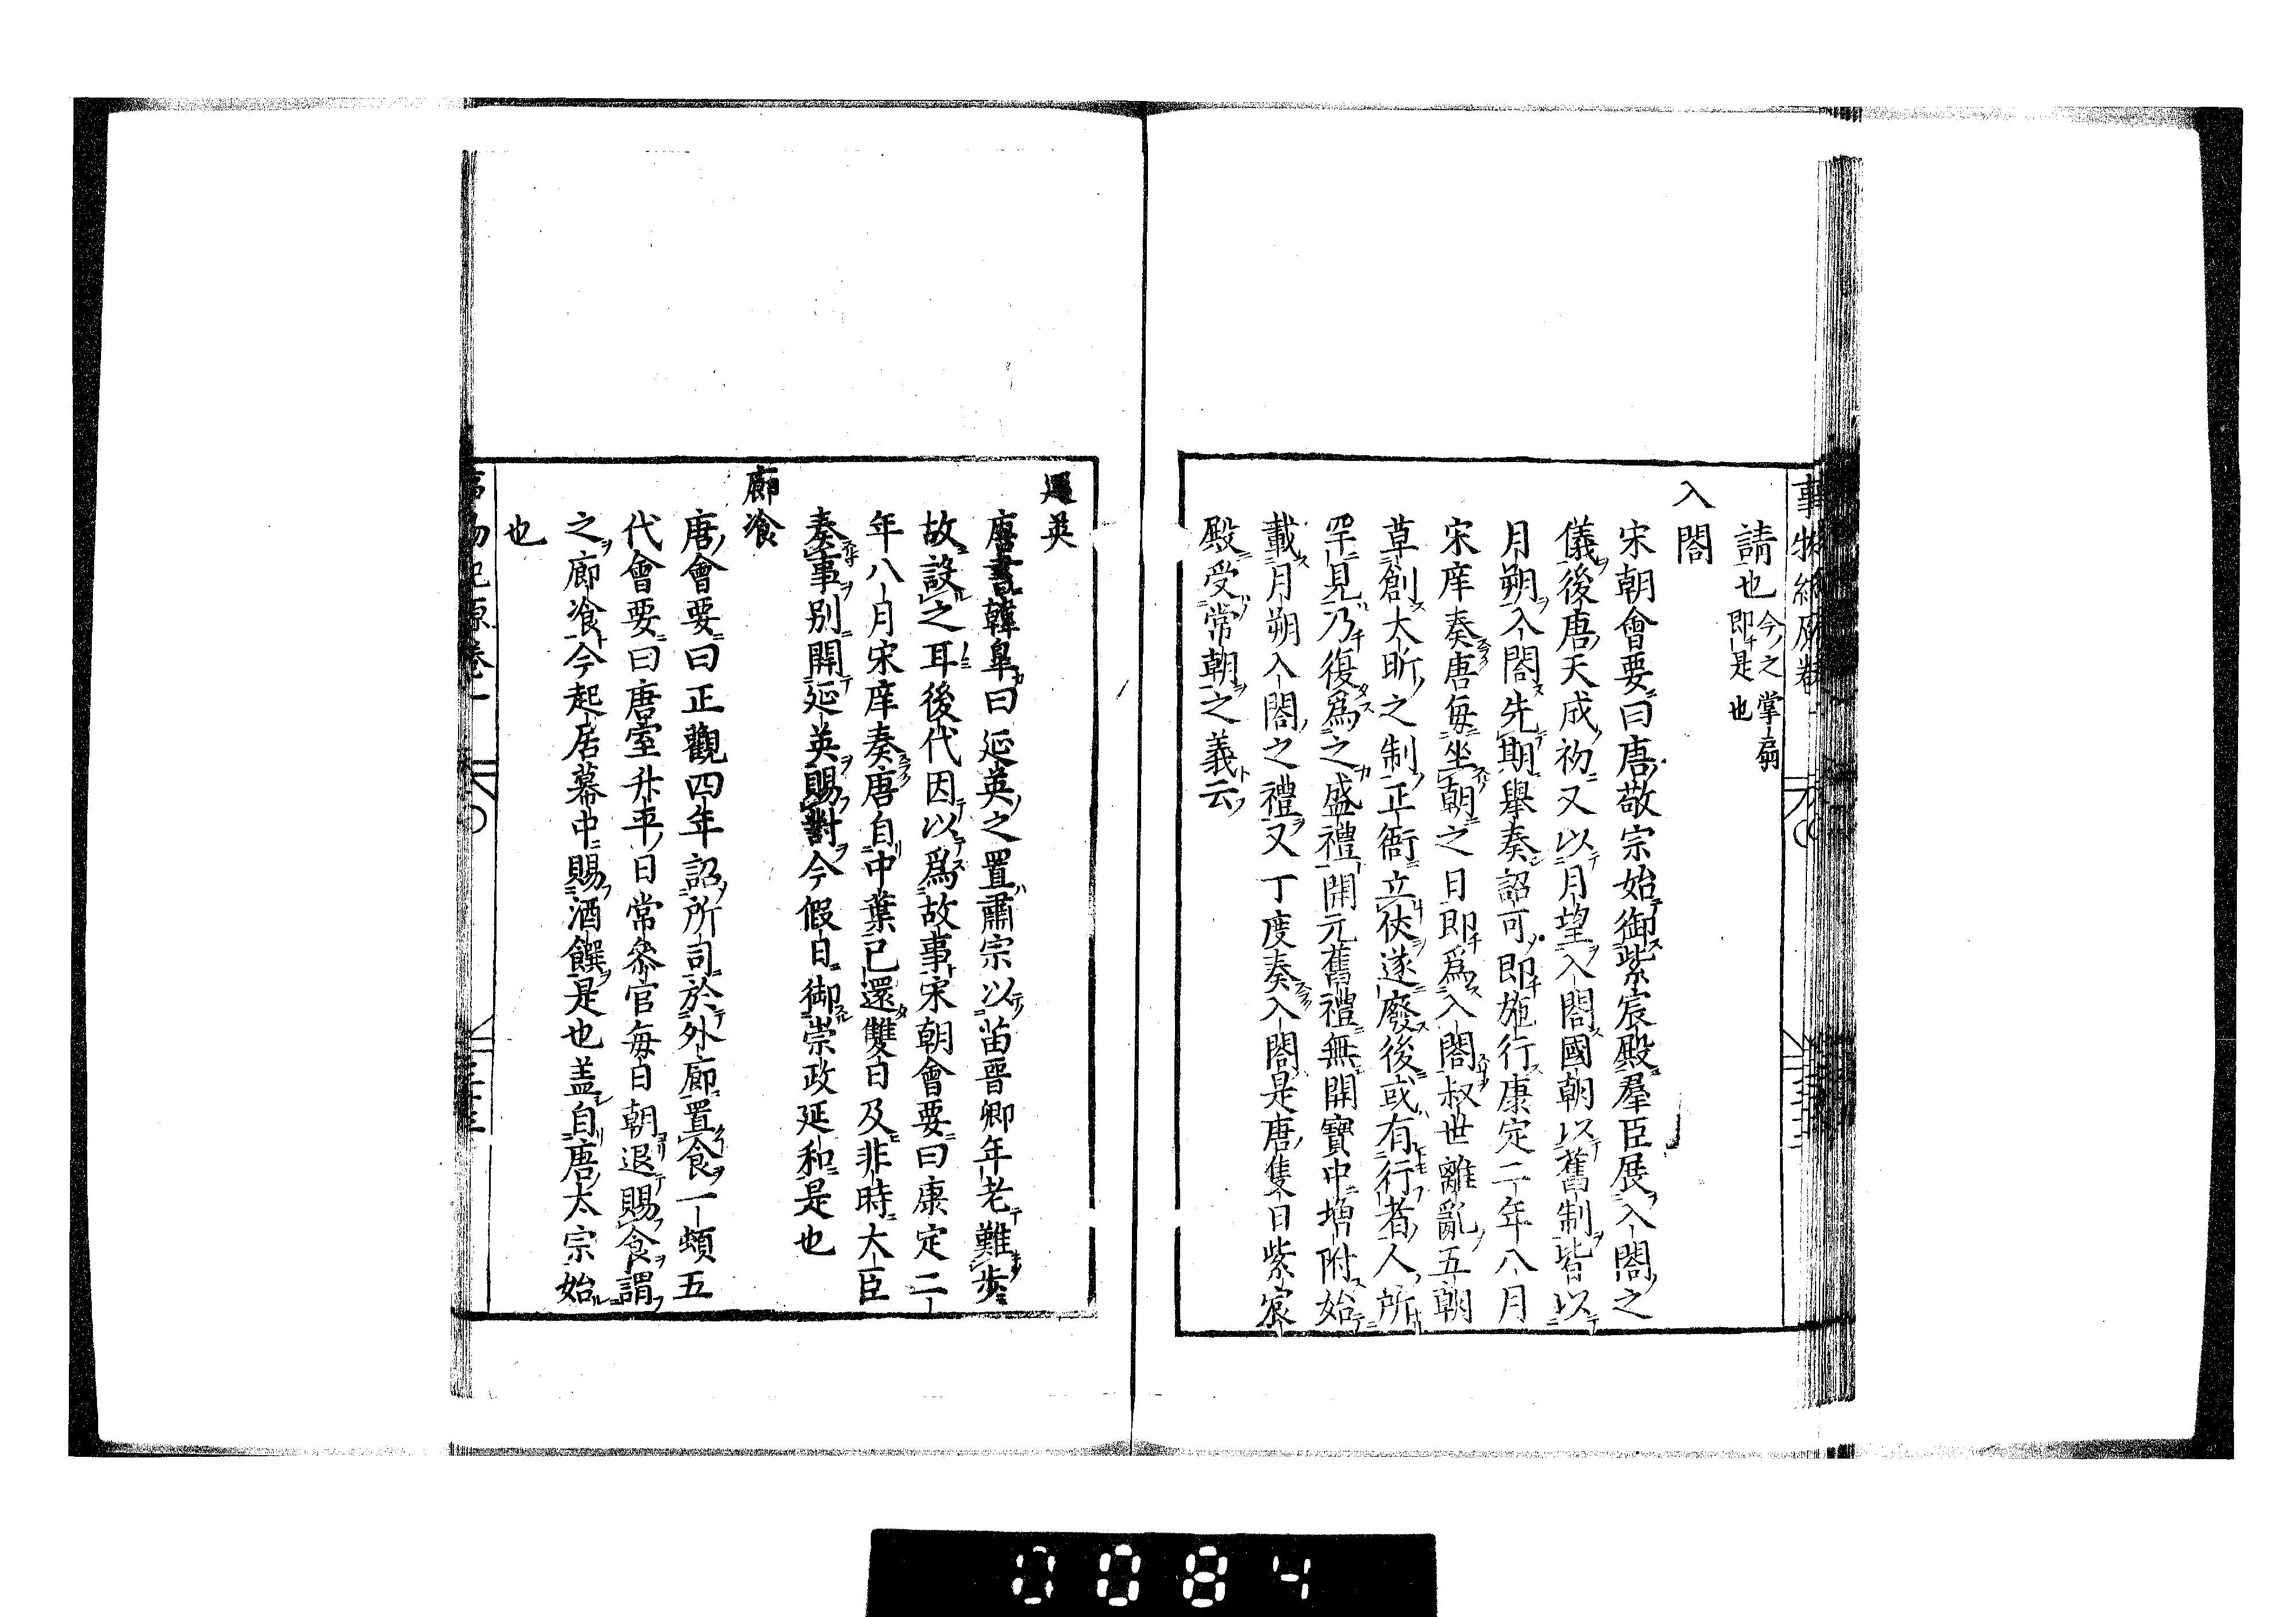 請也今之掌扇
即是也
入閤
宋朝會要曰唐敬宗始御紫宸殿羣臣展入閤之
儀後唐天成初又以月望入閤國朝以舊制皆以
月朔入閤先期舉奏詔可即施行康定二年八月
宋庠奏唐每坐朝之日即爲入閤叔世離亂五朝
草創大昕之制正衙立仗遂廢後或有行者人所
罕見乃復爲之盛禮開元舊禮無開寶中増附始
載月朔入閤之禮又丁度奏入閤是唐隻日紫宸
殿受常朝之義云
英
唐書韓皐曰延英之置肅宗以苗晋卿年老難步
故設之耳後代因以爲故事宋朝會要曰康定二
年八月宋庠奏唐自中葉已還雙日及非時大臣
奏事別開延英賜對今假日御崇政延和是也
廊飡
唐會要曰正觀四年詔所司於外廊置食一頓五
代會要曰唐室升平日常叅官每日朝退賜食謂
之廊飡今起居幕中賜酒饌是也盖自唐太宗始
也
事物紀原卷一
0084